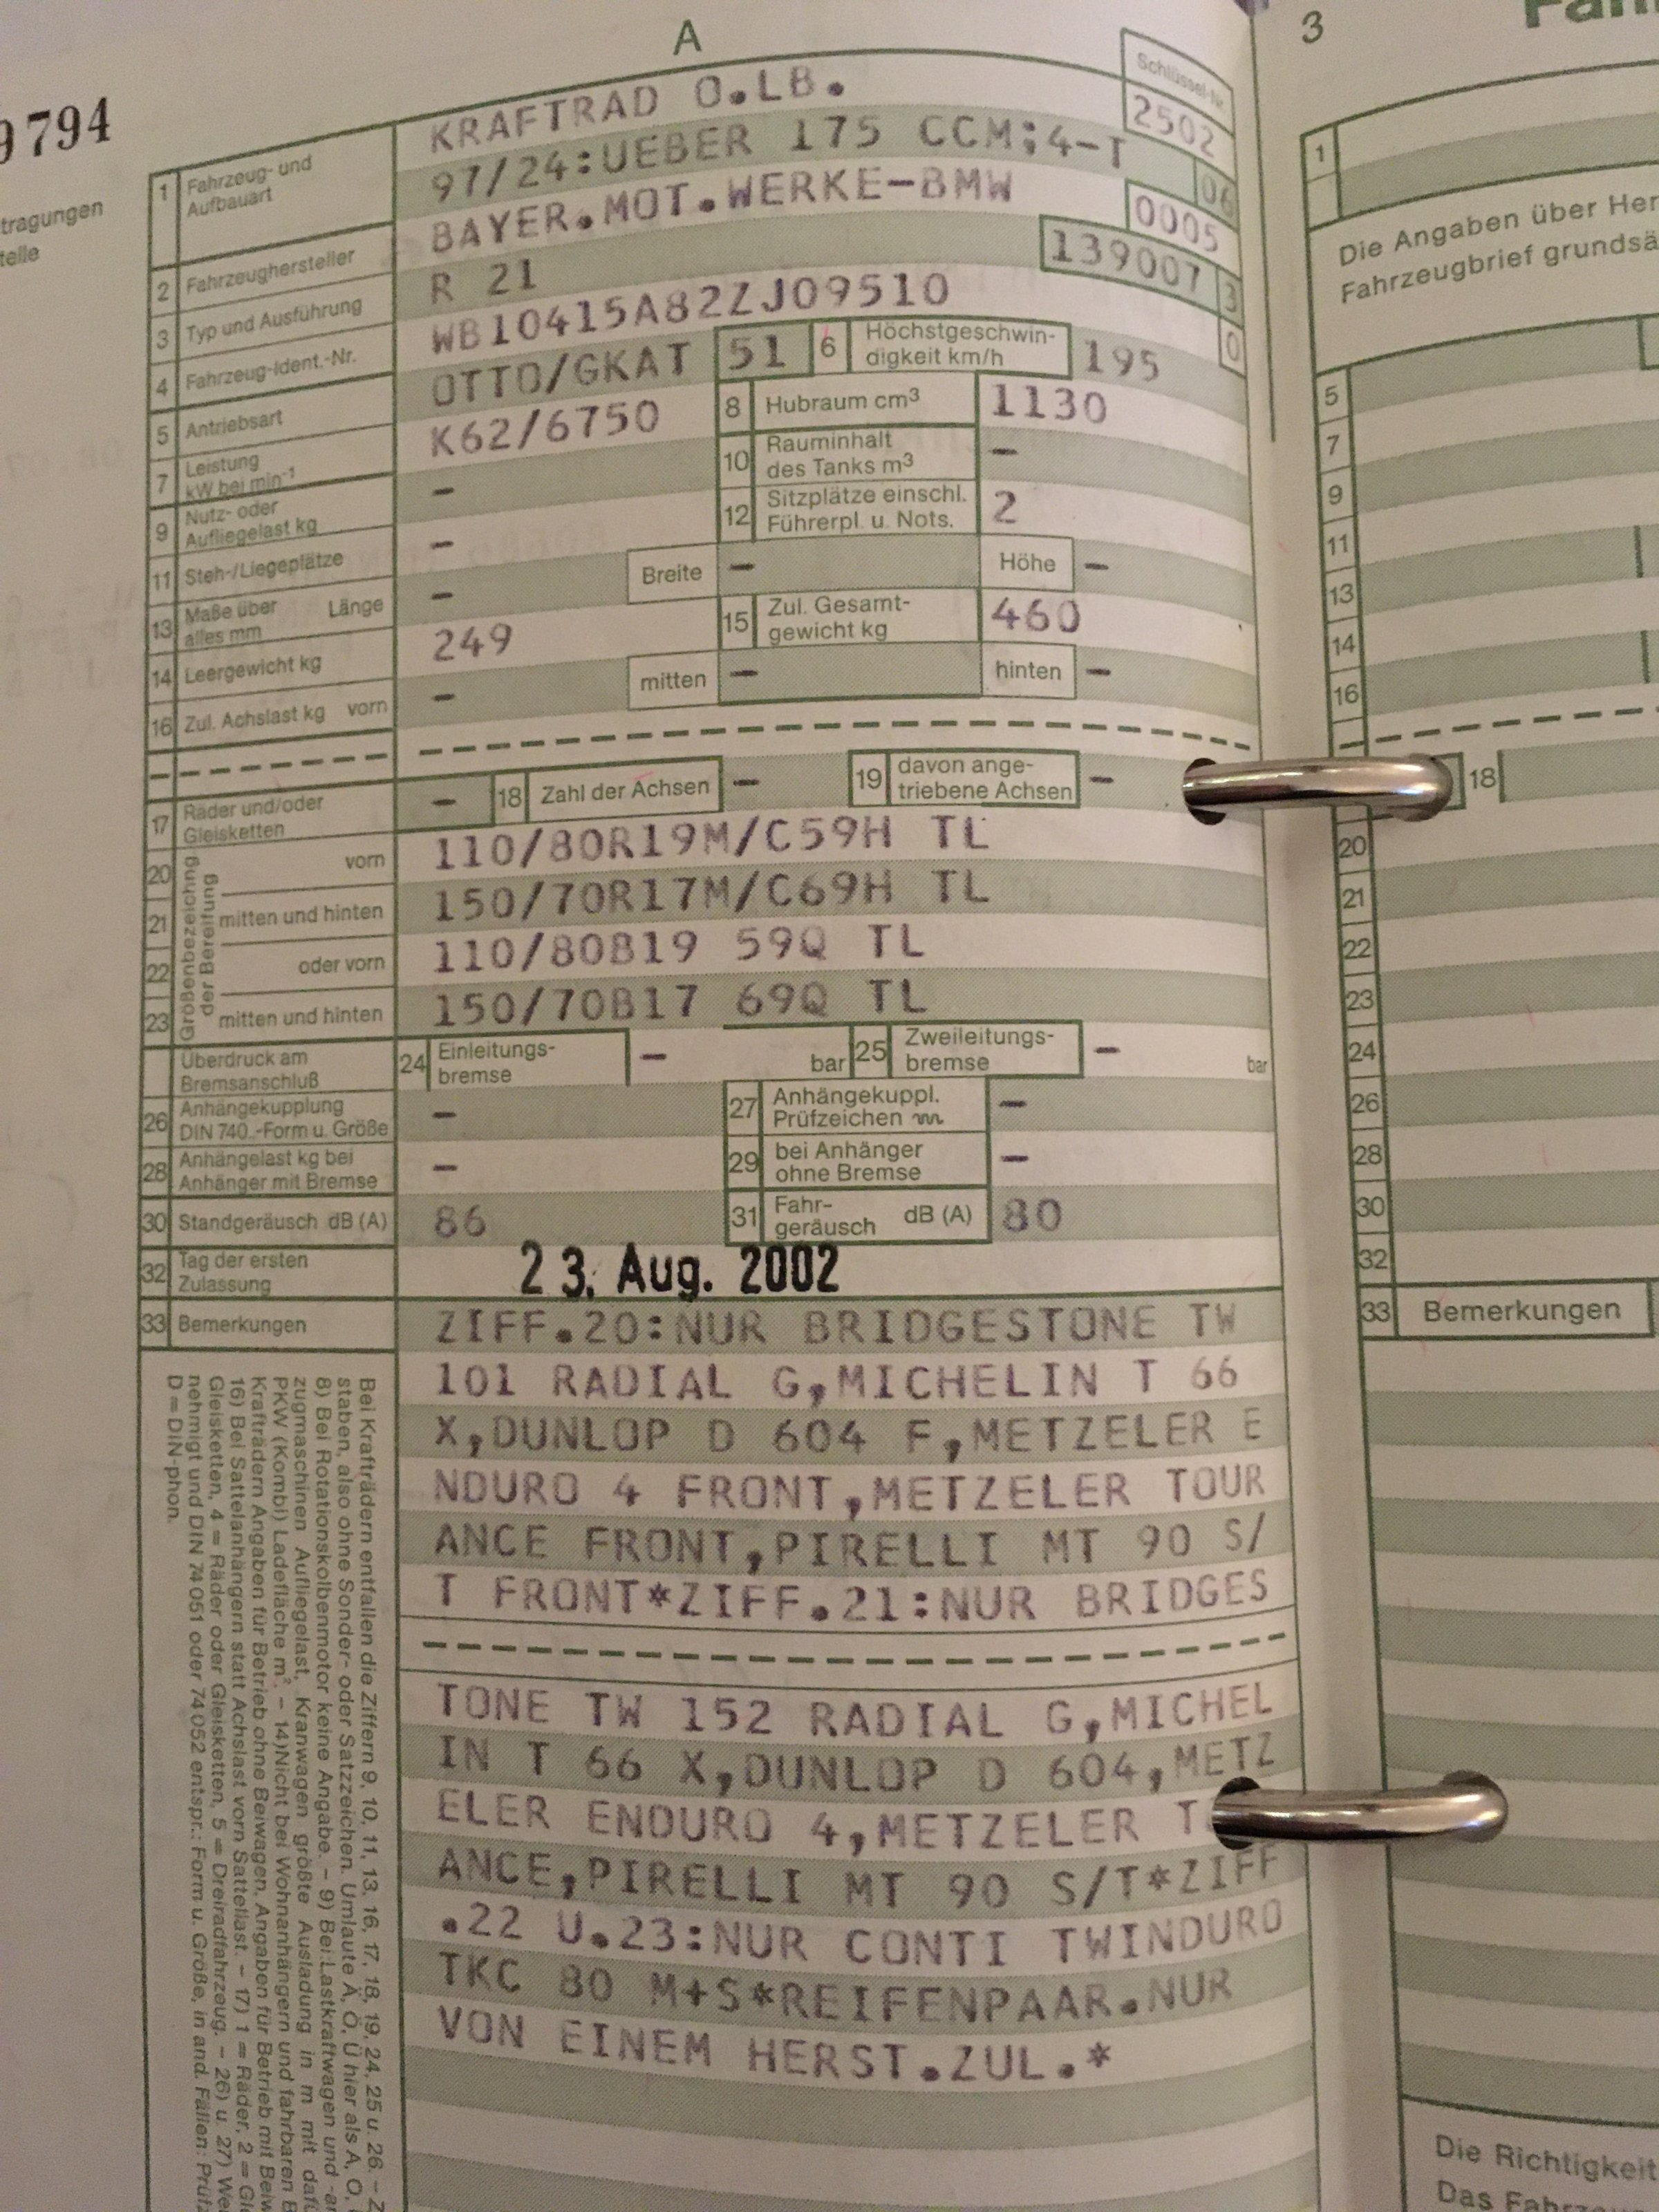 A
3
9794
tragungen
telle
Schlüssel-Nr.
KRAFTRAD O.LB.
2502
1 Fahrzeug- und Aufbauart
97/24:UEBER 175 CCM;4-T
06
2 Fahrzeughersteller
BAYER.MOT.WERKE-BMW
0005
3 Typ und Ausführung
R 21
139007 3
4 Fahrzeug-Ident.-Nr.
WB10415A82ZJ09510
0
5 Antriebsart
OTTO/GKAT 51
6 Höchstgeschwin-
digkeit km/h 195
7 Leistung
kW bei min-1
K62/6750
8 Hubraum cm³ 1130
9 Nutz- oder
Aufliegelast kg
-
10 Rauminhalt
des Tanks m³ -
11 Steh-/Liegeplätze
-
12 Sitzplätze einschl.
Führerpl. u. Nots. 2
13 Maße über
alles mm Länge
- Breite - Höhe -
14 Leergewicht kg
249
15 Zul. Gesamt-
gewicht kg 460
16 Zul. Achslast kg vorn
- mitten - hinten -
17 Räder und/oder
Gleisketten
-
18 Zahl der Achsen -
19 davon ange-
triebene Achsen -
Größenbezeichnung
der Bereifung
20 vorn
110/80R19M/C59H TL
21 mitten und hinten
150/70R17M/C69H TL
22 oder vorn
110/80B19 59Q TL
23 mitten und hinten
150/70B17 69Q TL
Überdruck am
Bremsanschluß
24 Einleitungs-
bremse - bar
25 Zweileitungs-
bremse - bar
26 Anhängekupplung
DIN 740..-Form u. Größe
-
27 Anhängekuppl.
Prüfzeichen -
28 Anhängelast kg bei
Anhänger mit Bremse
-
29 bei Anhänger
ohne Bremse -
30 Standgeräusch dB (A)
86
31 Fahr-
geräusch dB (A) 80
32 Tag der ersten
Zulassung
23. Aug. 2002
33 Bemerkungen
ZIFF.20:NUR BRIDGESTONE TW
101 RADIAL G,MICHELIN T 66
X,DUNLOP D 604 F,METZELER E
NDURO 4 FRONT,METZELER TOUR
ANCE FRONT,PIRELLI MT 90 S/
T FRONT*ZIFF.21:NUR BRIDGES
TONE TW 152 RADIAL G,MICHEL
IN T 66 X,DUNLOP D 604,METZ
ELER ENDURO 4,METZELER T
ANCE,PIRELLI MT 90 S/T*ZIFF
.22 U.23:NUR CONTI TWINDURO
TKC 80 M+S*REIFENPAAR.NUR
VON EINEM HERST.ZUL.*
Bei Krafträdern entfallen die Ziffern 9, 10, 11, 13, 16, 17, 18, 19, 24, 25 u. 26. –
staben, also ohne Sonder- oder Satzzeichen. Umlaute Ä, Ö, Ü hier als A, O,
8) Bei Rotationskolbenmotor keine Angabe. – 9) Bei Lastkraftwagen und
zugmaschinen Aufliegelast, Kranwagen größte Ausladung in m mit
PKW (Kombi) Ladefläche m². – 14) Nicht bei Wohnanhängern und fahrbaren
Krafträdern Angaben für Betrieb ohne Beiwagen, Angaben für Betrieb mit
16) Bei Sattelanhängern statt Achslast vorn Sattellast. – 17) 1 = Räder, 2 =
Gleisketten, 4 = Räder oder Gleisketten, 5 = Dreiradfahrzeug. – 26) u. 27)
nehmigt und DIN 74 051 oder 74 052 entspr.: Form u. Größe, in and. Fällen:
D = DIN-phon.
1
Die Angaben über
Fahrzeugbrief
5
7
9
11
13
14
16
18
20
21
22
23
24
26
28
30
32
33 Bemerkungen
Die Richtigkeit
Das